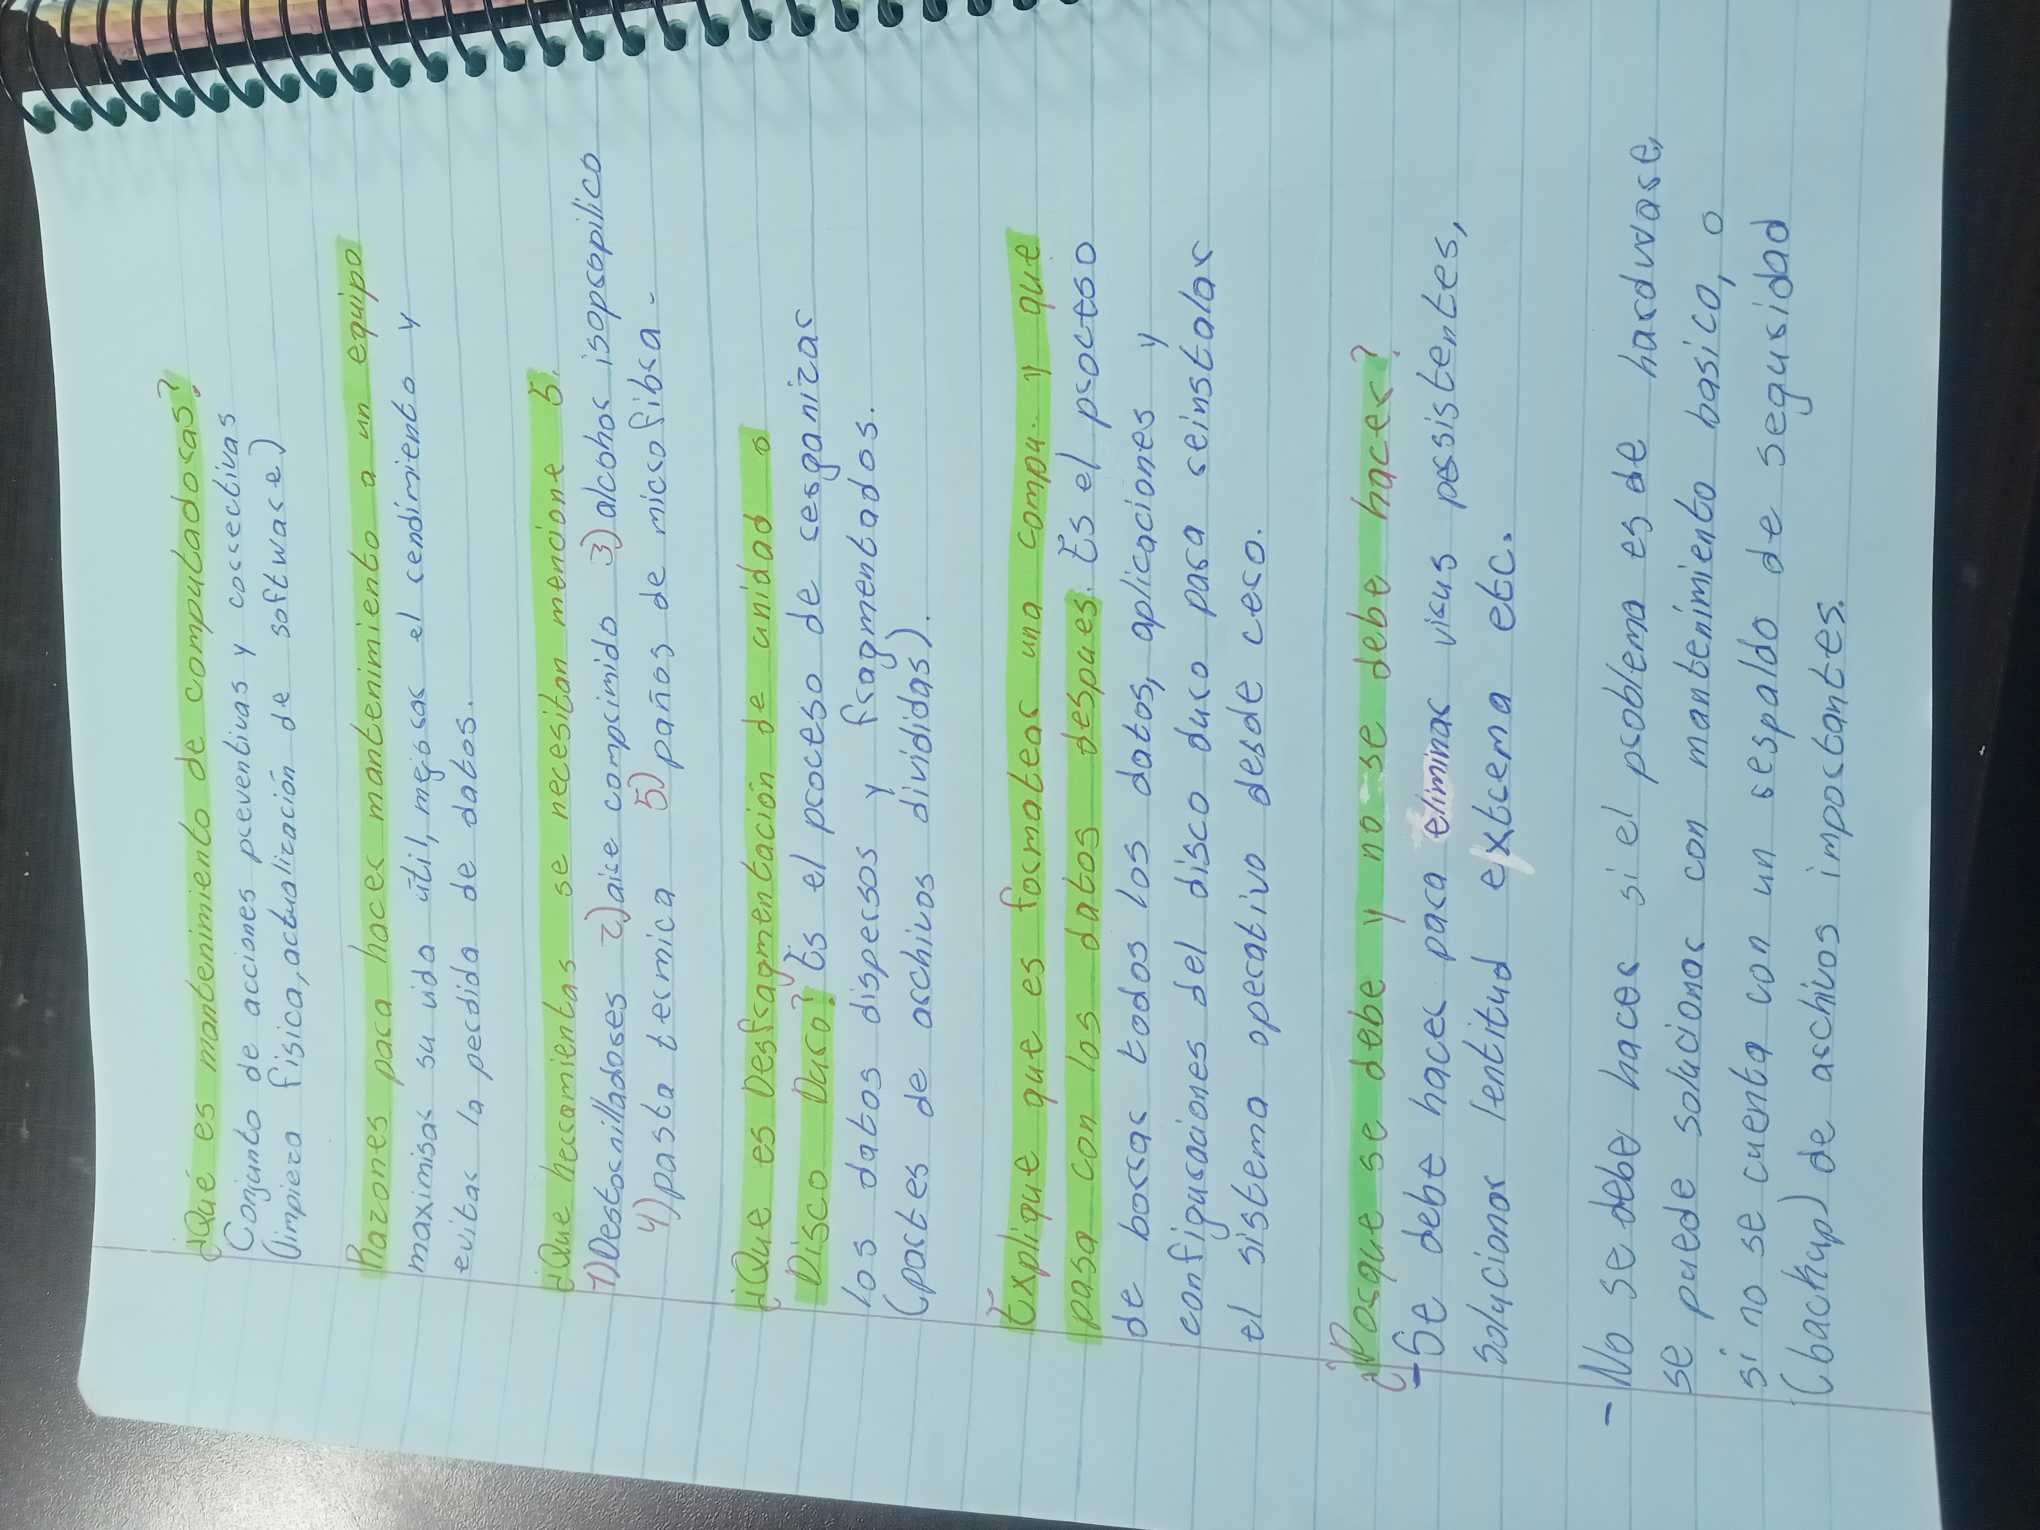 ¿Qué es mantenimiento de computadoras?
Conjunto de acciones preventivas y correctivas
(limpieza física, actualización de software)
Razones para hacer mantenimiento a un equipo
maximisar su vida útil, mejorar el rendimiento y
evitar la perdida de datos.
¿Que herramientas se necesitan mencione 5.
1) Destornilladores 2) aire comprimido 3) alcohor isopropilico
4) pasta termica 5) paños de microfibra.
¿Que es Desfragmentación de unidad o
Disco Duro? Es el proceso de reganizar
los datos dispersos y fragmentados.
(partes de archivos divididas).
Explique que es formatear una compu. y que
pasa con los datos despues. Es el proceso
de borrar todos los datos, aplicaciones y
configuraciones del disco duro para reinstalar
el sistema operativo desde cero.
¿Porque se debe y no se debe hacer?
- Se debe hacer para eliminar virus persistentes,
solucionar lentitud extrema etc.
- No se debe hacer si el problema es de hardware,
se puede solucionar con mantenimiento basico, o
si no se cuenta con un respaldo de seguridad
(backup) de archivos importantes.